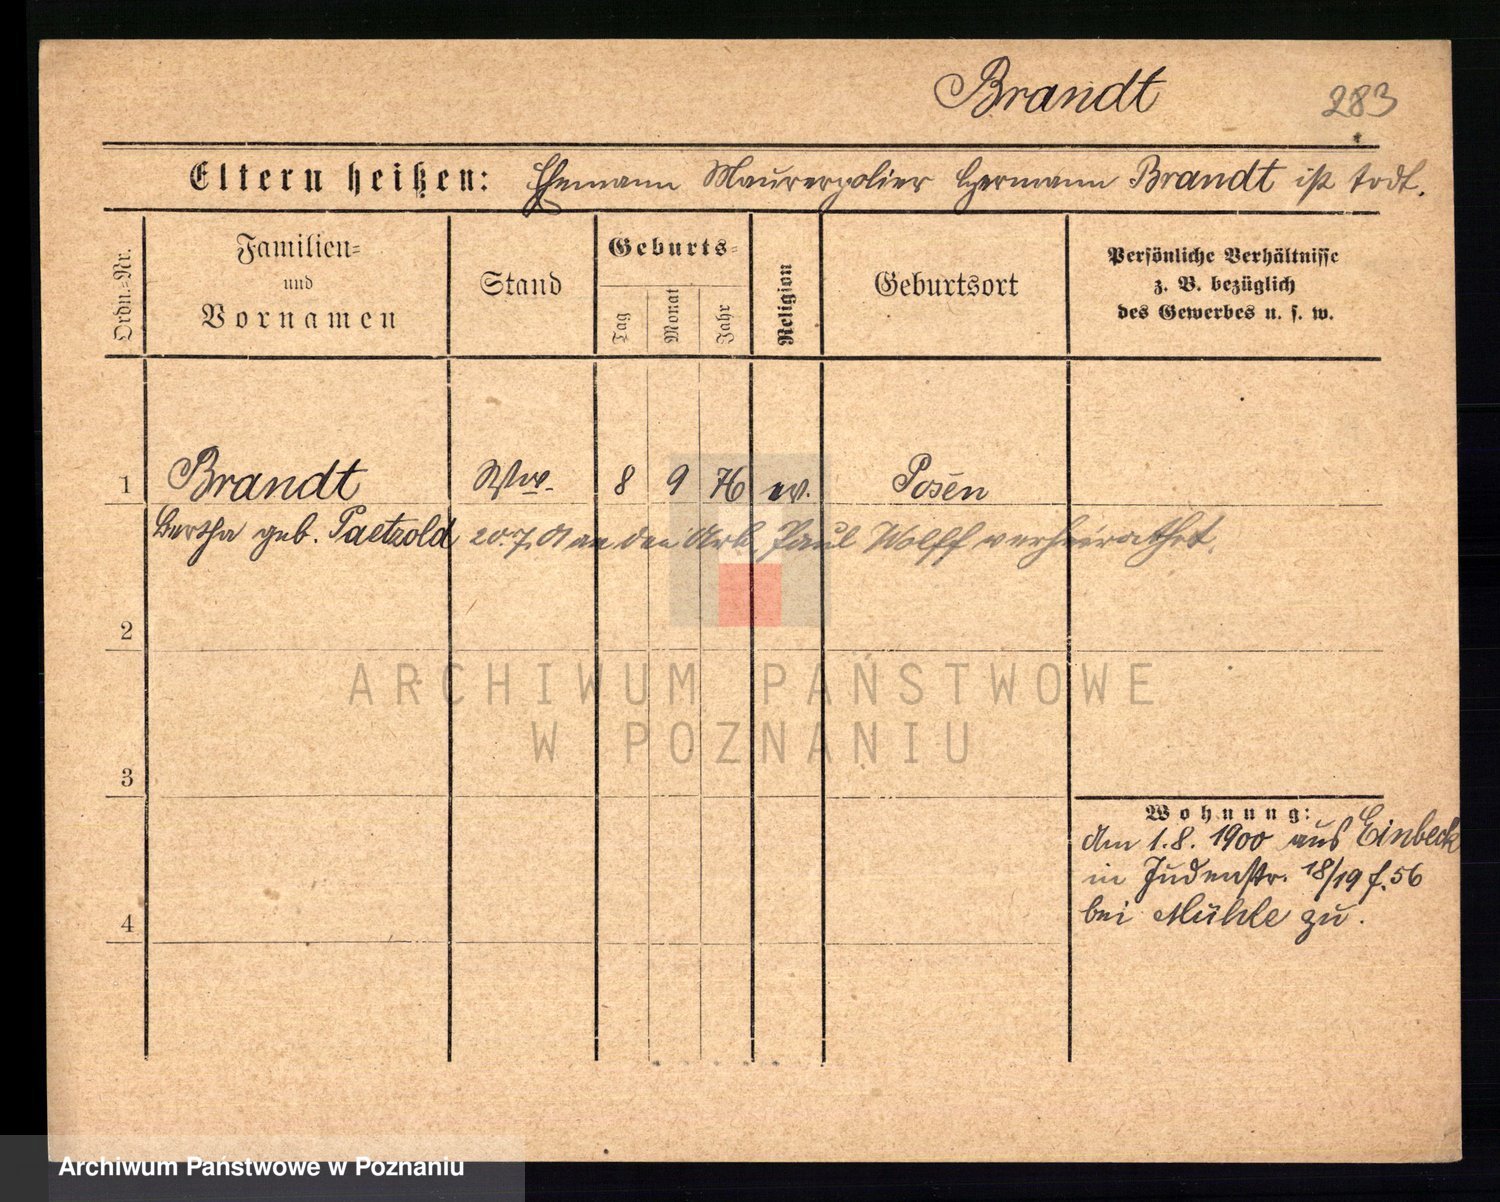 Brandt 283
Eltern heißen: Ehemann Maurerpolier Hermann Brandt ist todt.
Ordn.-Nr. Familien- und Vornamen Stand Geburts- Tag Monat Jahr Religion Geburtsort Persönliche Verhältnisse z. B. bezüglich des Gewerbes u. s. w.
1 Brandt Ww. 8 9 76 ev. Posen
Bertha geb. Paetzold 20.7.01 an den Arb. Paul Wolff verheirathet.
2
ARCHIWUM PAŃSTWOWE
W POZNANIU
3
Wohnung:
Am 1.8. 1900 aus Einbeck
in Judenstr. 18/19 f. 56
bei Mühle zu.
4
Archiwum Państwowe w Poznaniu